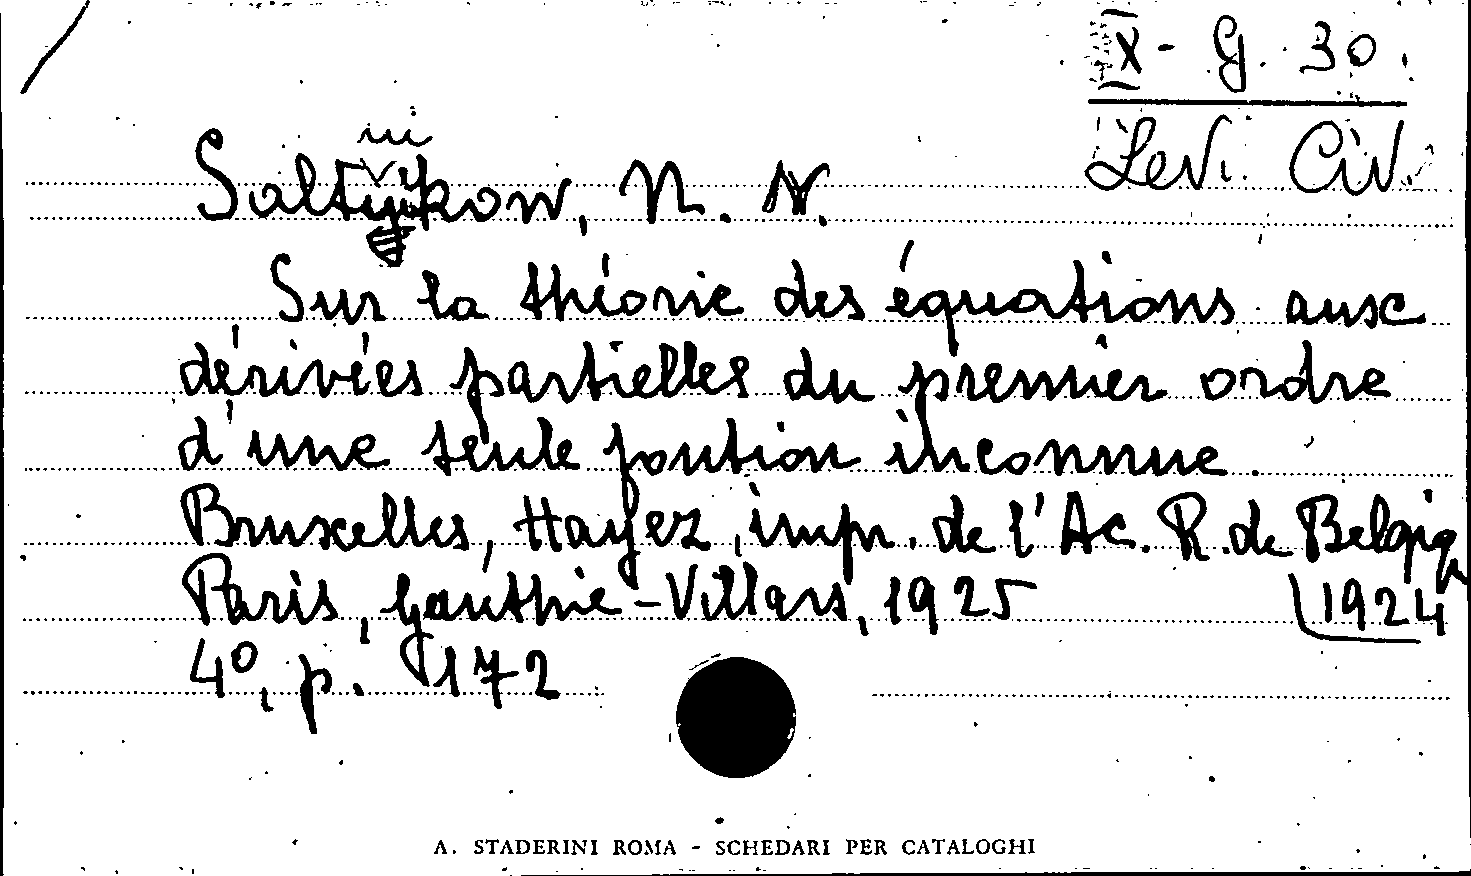 X - G. 30.
Levi Civ.
Saltykow, N. N.
Sur la théorie des équations aux
dérivées partielles du premier ordre
d'une seule fontion inconnue.
Bruxelles, Hayez, impr. de l'Ac. R. de Belgiq
Paris, Gauthie-Villars, 1925 1924
4º, p. 172
A. STADERINI ROMA - SCHEDARI PER CATALOGHI